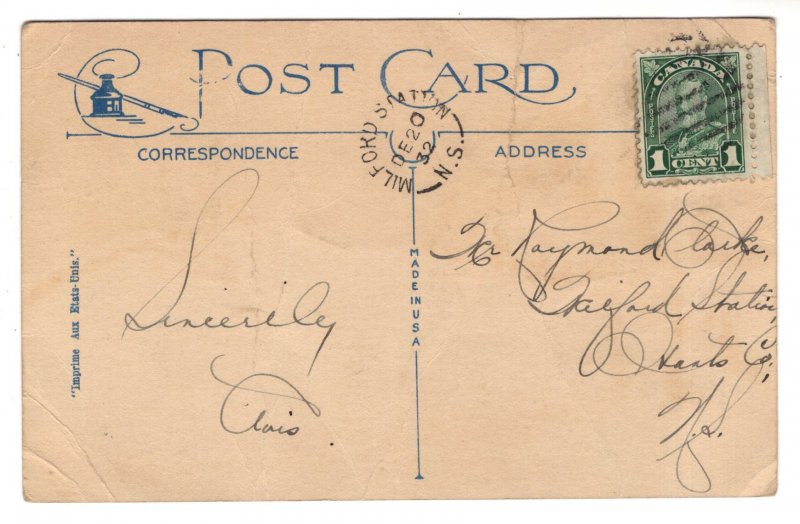 POST CARD
CORRESPONDENCE
ADDRESS
MILFORD STATION
DE 20
32
N.S.
CANADA
POSTAGE
1 CENT 1
"Imprime Aux Etats-Unis."
MADE IN USA
Sincerely
Mr Raymond Clarke,
Milford Station,
Hants Co,
N.S.